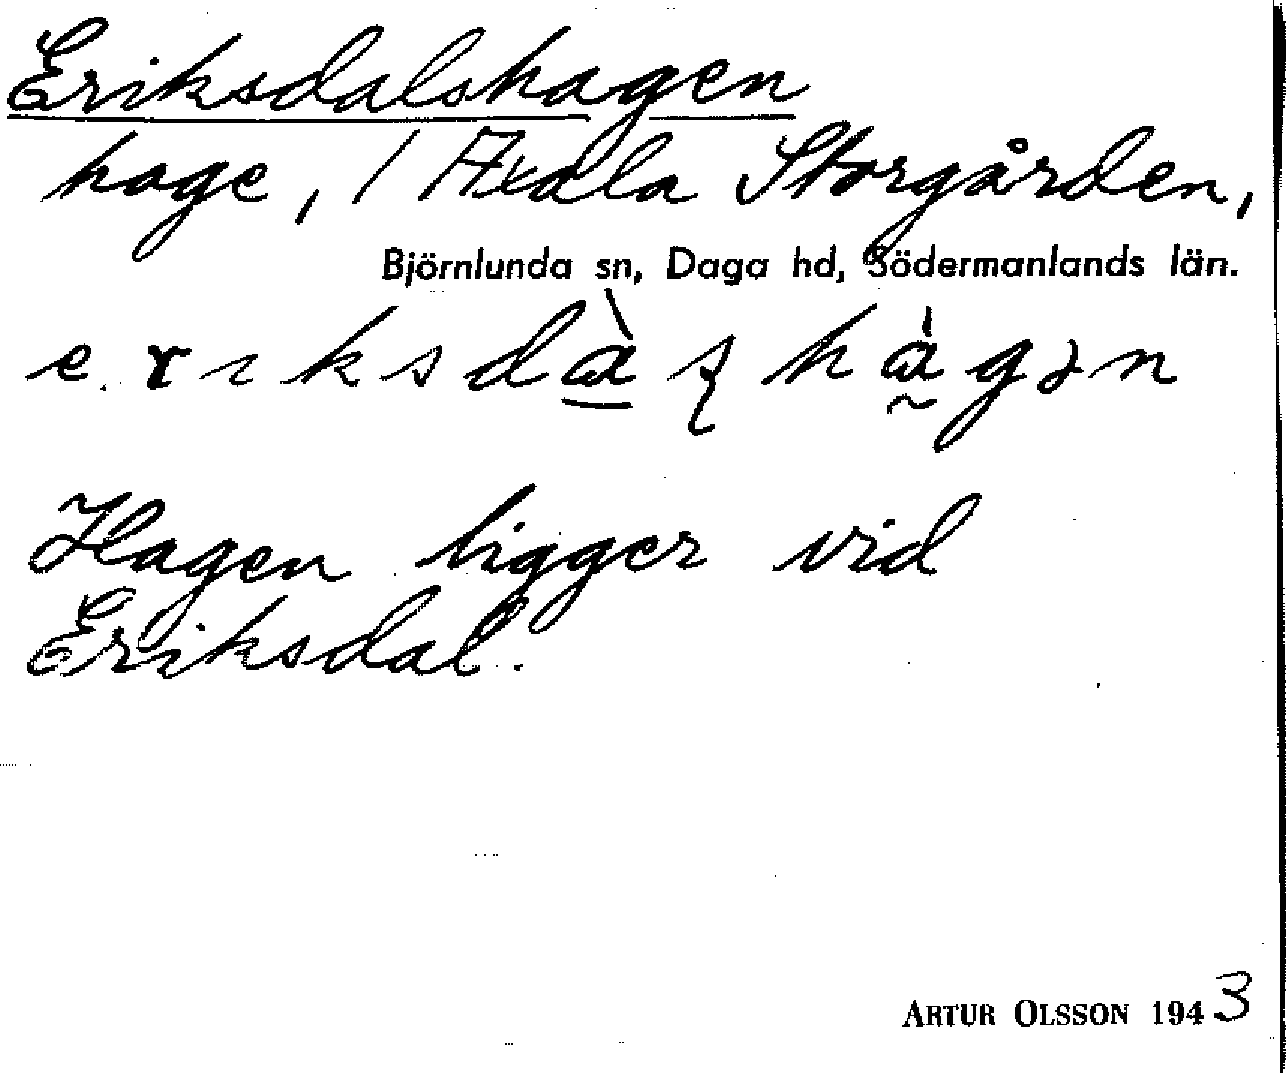 Eriksdalshagen
hage, / Axala Storgården,
Björnlunda sn, Daga hd, Södermanlands län.
Hagen ligger vid
Eriksdal.
ARTUR OLSSON 1943